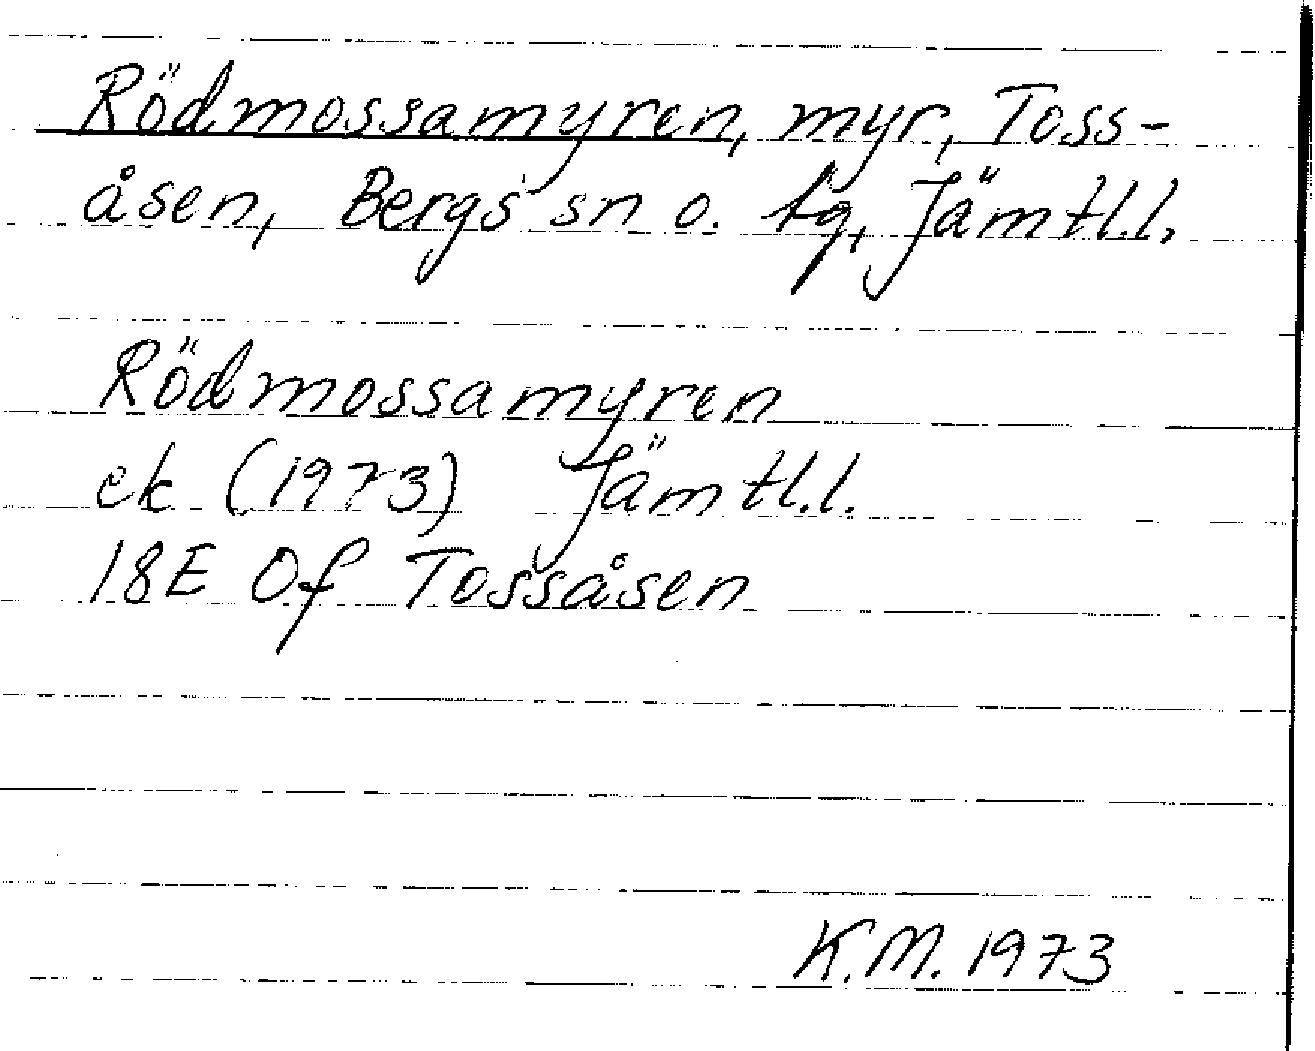 Rödmossamyren, myr, Toss-
åsen, Bergs sn o. tg, Jämtl.l.
Rödmossamyren
ek (1973) Jämtl.l.
18E 0f Tossåsen
K.M. 1973